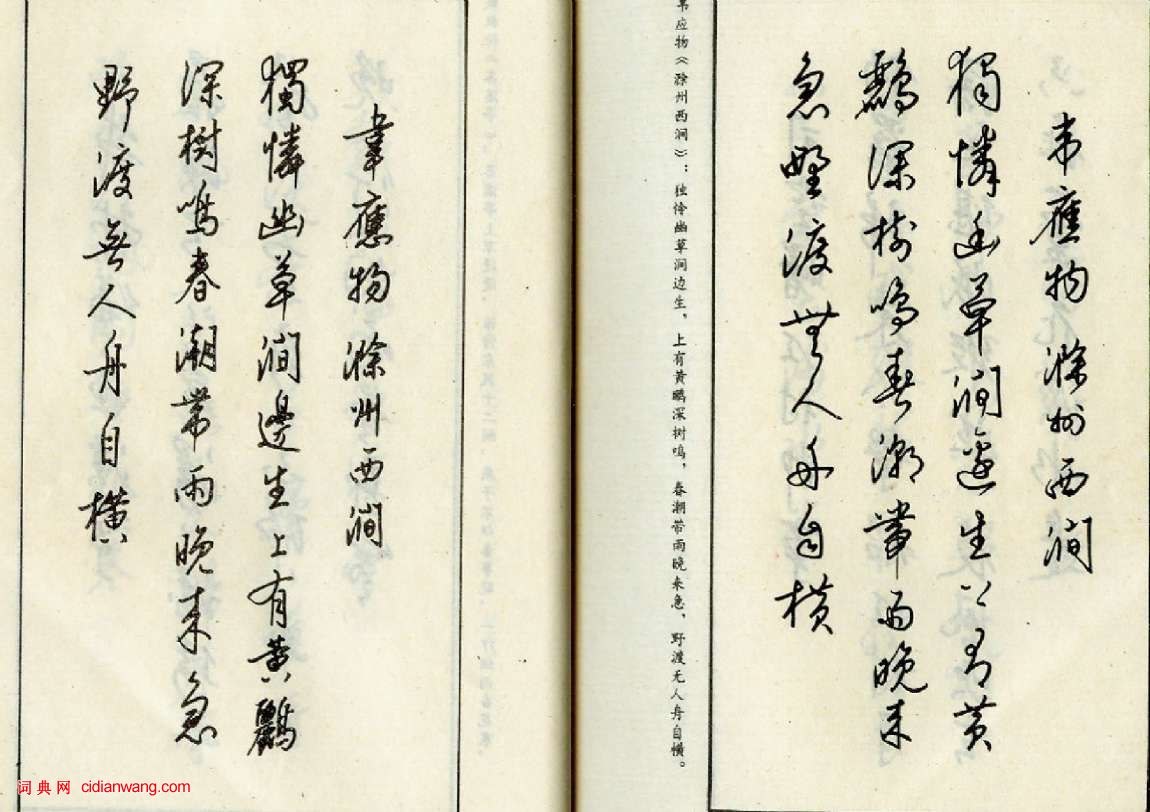 韦應物滁州西澗
獨憐幽草澗邊生上有黄
鸝深樹鳴春潮帶雨晚来
急野渡無人舟自横
韦应物《滁州西涧》：独怜幽草涧边生，上有黄鹂深树鸣，春潮带雨晚来急，野渡无人舟自横。
韋應物滁州西澗
獨憐幽草澗邊生上有黄鸝
深樹鳴春潮帶雨晚来急
野渡無人舟自横
词典网 cidianwang.com